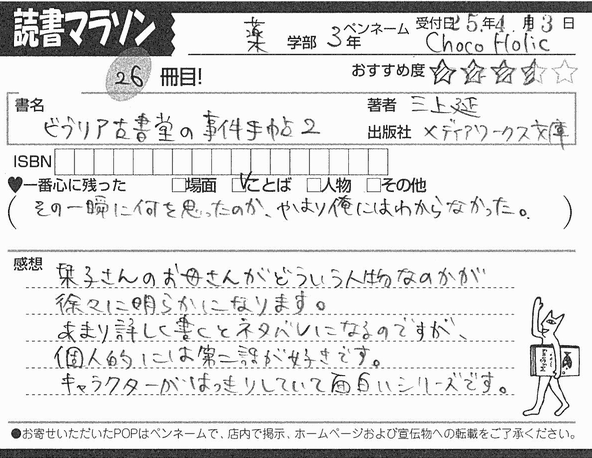 読書マラソン
薬 学部 3年
ペンネーム 受付日25年4月3日
Choco Holic
26 冊目!
おすすめ度 ★★★☆☆
書名
ビブリア古書堂の事件手帖2
著者 三上延
出版社 メディアワークス文庫
ISBN
♥一番心に残った □場面 ☑ことば □人物 □その他
(その一瞬に何を思ったのか、やはり俺にはわからなかった。)
感想
栞子さんのお母さんがどういう人物なのかが
徐々に明らかになります。
あまり詳しく書くとネタバレになるのですが、
個人的には第二話が好きです。
キャラクターがはっきりしていて面白いシリーズです。
●お寄せいただいたPOPはペンネームで、店内で掲示、ホームページおよび宣伝物への転載をご了承ください。